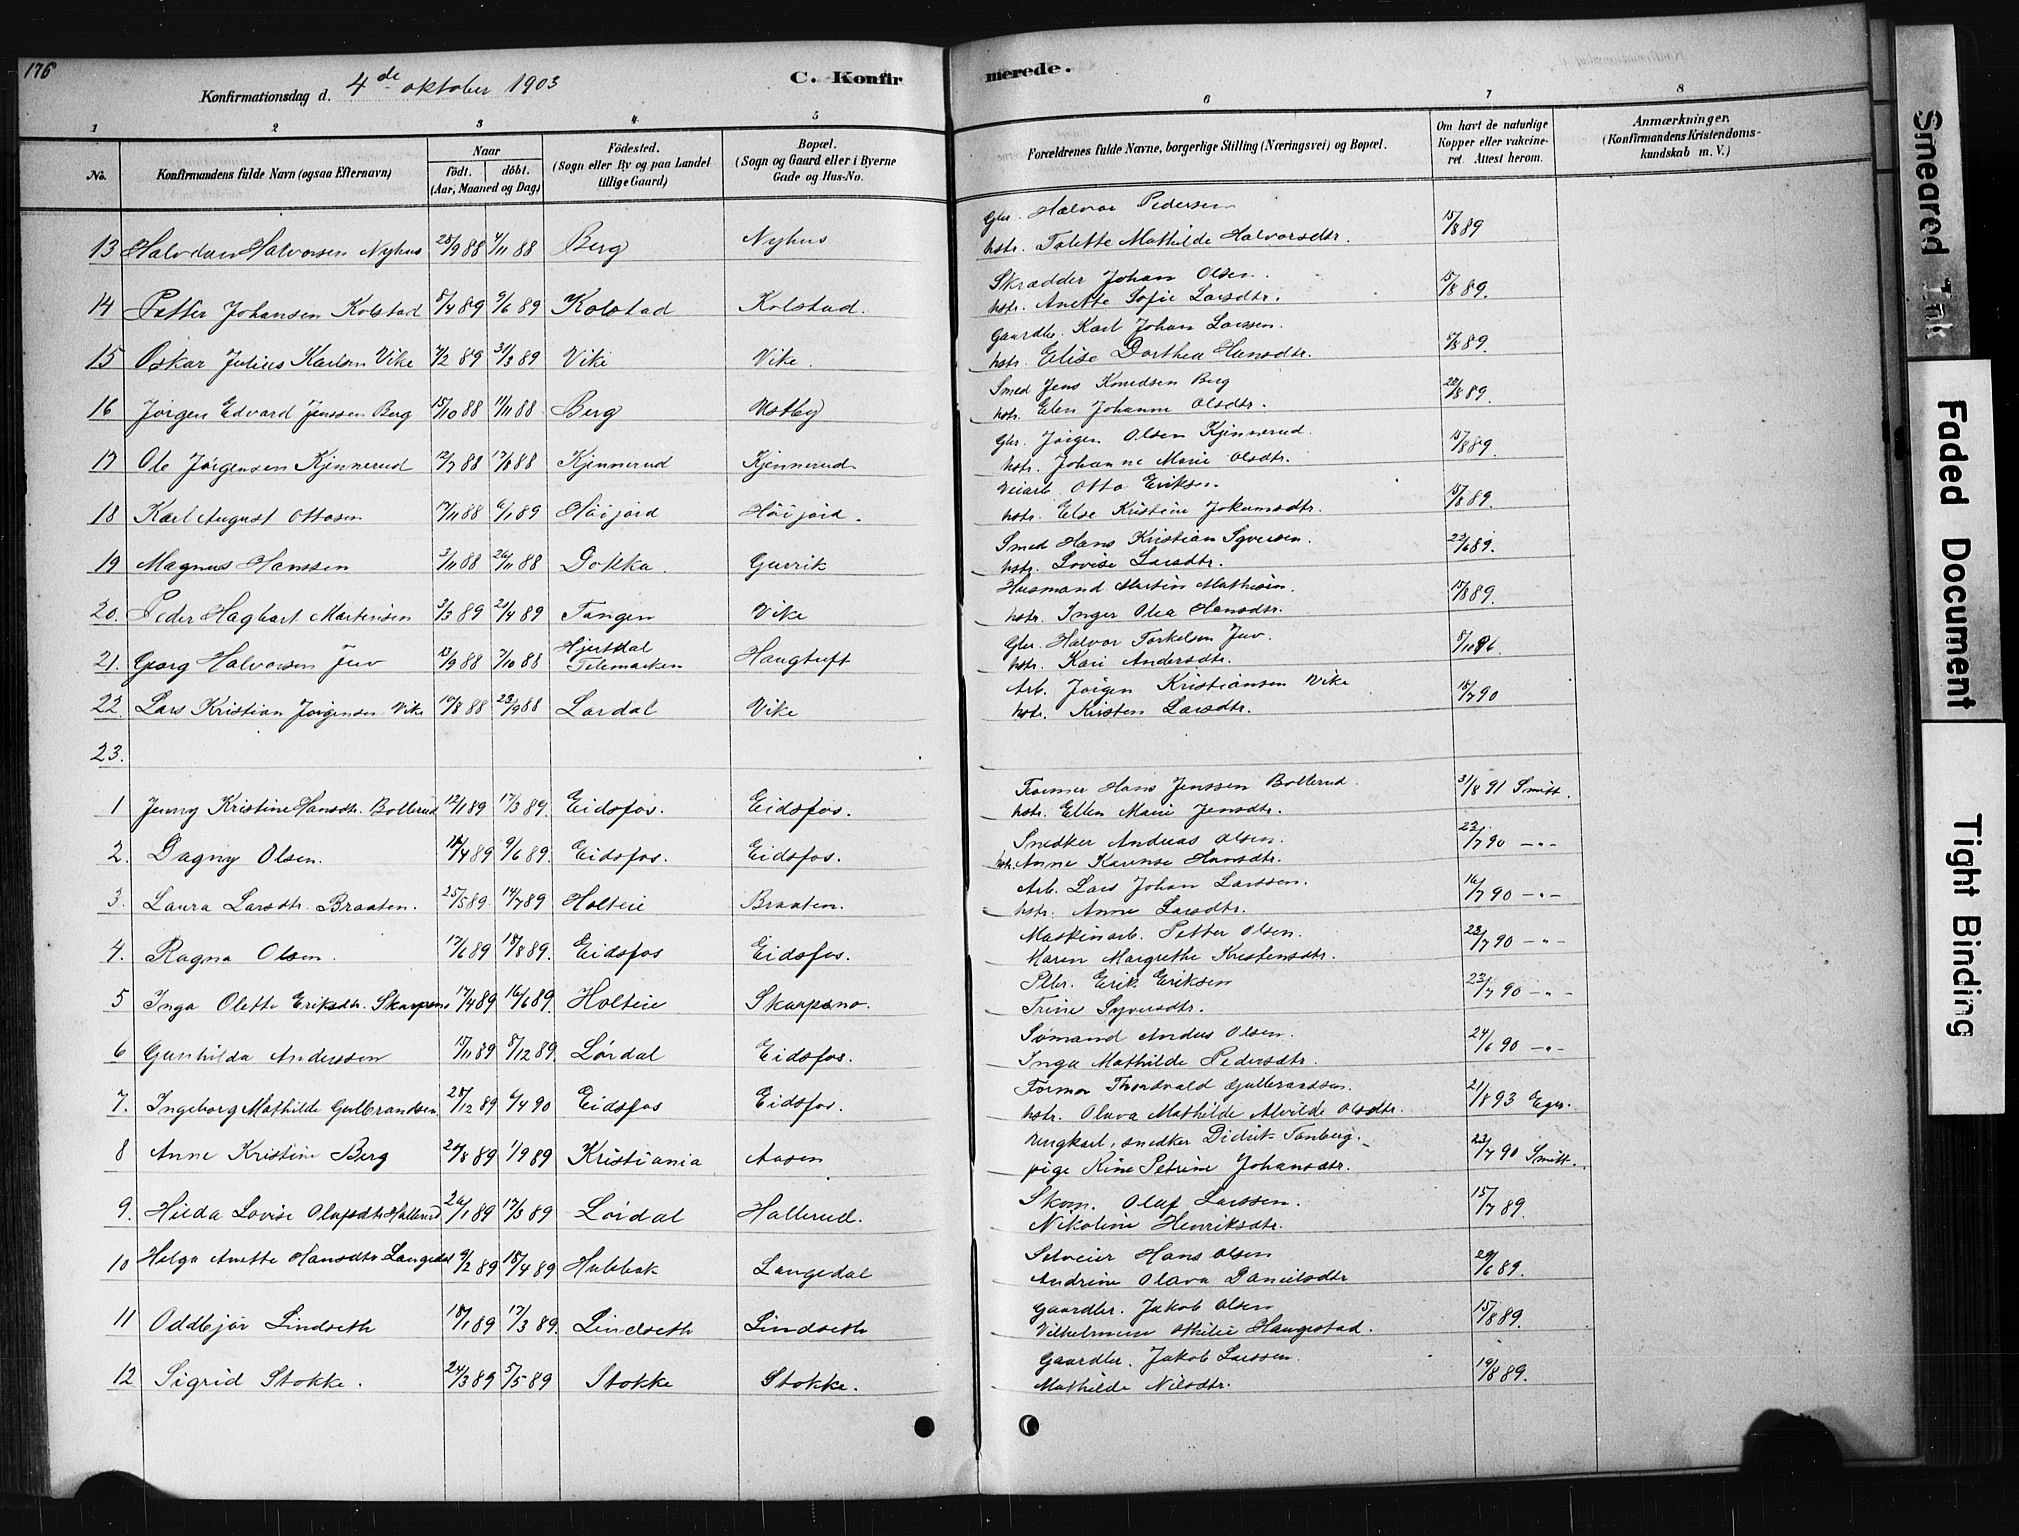 176
Konfirmationsdag d. 4de oktober 1903
C. Konfirmerede.
1 2 3 4 5 6 7 8
No.
Konfirmandens fulde Navn (ogsaa Efternavn)
Naar
födt. döbt.
(Aar, Maaned og Dag)
Födested.
(Sogn eller By og paa Landet
tillige Gaard)
Bopæl.
(Sogn og Gaard eller i Byerne
Gade og Hus-No.
Forældrenes fulde Navne, borgerlige Stilling (Næringsvei) og Bopæl.
Om havt de naturlige
Kopper eller vakcine-
ret. Attest herom.
Anmærkninger.
(Konfirmandens Kristendoms-
kundskab m. V.)
13 Halvdan Halvorsen Nyhus 28/9 88 4/11 88 Berg Nyhus Gbr. Halvor Pedersen 15/8 89
hstr. Talette Mathilde Halvorsdtr.
14 Petter Johansen Kolstad 8/4 89 9/6 89 Kolstad Kolstad. Skrædder Johan Olsen. 15/8 89.
hstr. Anette Sofie Larsdtr.
15 Oskar Julius Karlsen Vike 7/2 89 31/3 89 Vike Vike. Gaardbr. Karl Johan Larssen. /8 89.
hstr. Elise Dorthea Hansdtr.
16 Jørgen Edvard Jenssen Berg 15/10 88 11/11 88 Berg Vestby Smed Jens Knudsen Berg 22/8 89.
hstr. Elen Johanne Olsdtr.
17 Ole Jørgensen Kjennerud 12/7 88 /8 88 Kjennerud Kjennerud Gbr. Jørgen Olsen Kjennerud. 15/8 89.
hstr. Johanne Marie Olsdtr.
18 Karl August Ottosen 17/11 88 6/1 89 Høijord Høijord. Veiarb. Otto Eriksen. 15/8 89.
hstr. Else Kristine Jokumsdtr.
19 Magnus Hanssen 3/11 88 26/11 88 Dokka. Gurrik Smed Hans Kristian Syversen. 23/6 89.
hstr. Lovise Larsdtr.
20. Peder Hagbart Martinsen 3/3 89 21/4 89 Tangen Vike Husmand Martin Mathisen. 15/8 89.
hstr. Inger Olea Hansdtr.
21. Georg Halvorsen Juv 13/9 88 7/10 88 Hjertdal Telemarken Haugtuft Gbr. Halvor Torkelsen Juv. 8/10 96.
hstr. Kari Andersdtr.
22. Lars Kristian Jørgensen Vike 19/8 88 23/9 88 Lardal Vike Arb. Jørgen Kristiansen Vike 15/7 90
hstr. Kirsten Larsdtr.
23.
1 Jenny Kristine Hansdtr. Bollerud 12/1 89 17/3 89. Eidsfos. Eidsfos. Former Hans Jenssen Bollerud. 31/8 91 Smitt.
hstr. Ellen Marie Jensdtr.
2. Dagny Olsen. 18/4 89 9/6 89. Eidsfos. Eidsfos. Snedker Andreas Olsen. 23/7 90 -"-
hstr. Anne Karense Hansdtr.
3. Laura Larsdtr. Braaten. 25/5 89 14/7 89 Holteie Braaten. Arb. Lars Johan Larssen. 16/7 90 -"-
hstr. Anne Larsdtr.
4. Ragna Olsen. 17/6 89 18/8 89. Eidsfos Eidsfos. Maskinarb. Petter Olsen. 23/7 90 -"-
Maren Margrethe Kristensdtr.
5 Inga Olette Eriksdtr. Skarpsno 17/4 89 16/6 89. Holteie Skarpsno. Pbr. Erik Eriksen 23/7 90 -"-
Trine Syversdtr.
6 Gunhilda Anderssen 15/11 89 8/12 89. Lørdal Eidsfos. Sømand Anders Olsen. 24/6 90 -"-
Inga Mathilde Pedersdtr.
7. Ingeborg Mathilde Gulbrandsen 28/12 89 6/4 90 Eidsfos Eidsfos. Former Thordvald Gulbrandsen. 21/8 93 Eger.
hstr. Olava Mathilde Alvilde Olsdtr.
8 Anne Kristine Berg 24/8 89 1/9 89 Kristiania Aasen Ungkarl, snedker Didrik Tanberg. 23/7 90 Smitt.
pige Rine Petrine Johansdtr.
9. Hilda Lovise Olafsdtr. Hallerud 26/1 89 17/3 89 Lørdal Hallerud. Skom. Olaf Larssen. 15/7 89.
Nikoline Henriksdtr.
10 Helga Anette Hansdtr. Langedal 9/2 89 18/4 89 Hulebak Langedal Selveier Hans Olsen 29/6 89.
Andrine Olava Danielsdtr
11 Oddbjør Lindseth 18/1 89 17/3 89. Lindseth Lindseth Gaardbr. Jakob Olsen 15/8 89.
Vilhelmine Othilie Haugestad.
12 Sigrid Stokke. 24/3 89 5/5 89 Stokke Stokke. Gaardbr. Jakob Larssen. 19/8 89.
Mathilde Nilsdtr.
Smeared Ink
Faded Document
Tight Binding